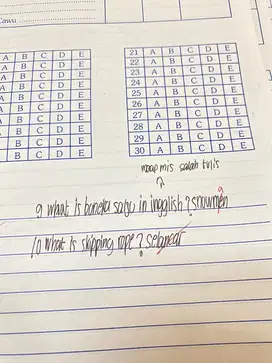 Cawu
A B C D E
A B C D E
A B C D E
A B C D E
A B C D E
A B C D E
A B C D E
A B C D E
A B C D E
A B C D E
21 A B C D E
22 A B C D E
23 A B C D E
24 A B C D E
25 A B C D E
26 A B C D E
27 A B C D E
28 A B C D E
29 A B C D E
30 A B C D E
maap mis salah tulis
9 what is boneka salju in ingglish? snowmen
10 what is skipping rope? selancar